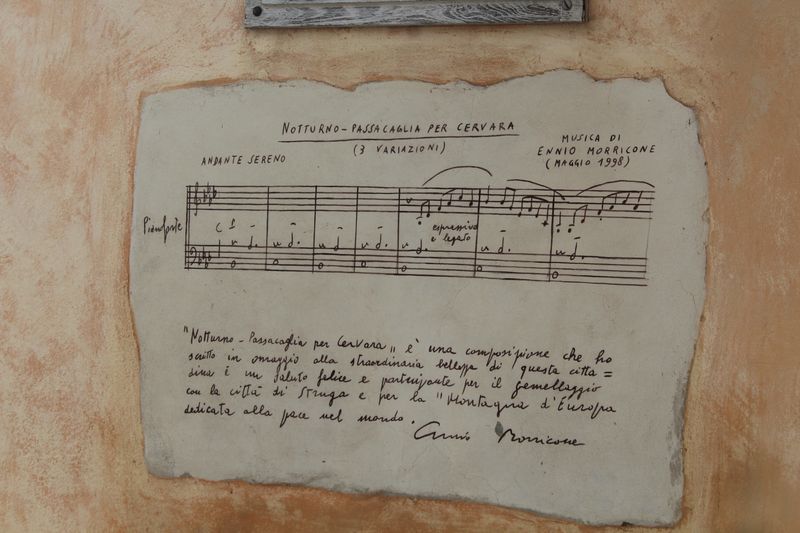 NOTTURNO-PASSACAGLIA PER CERVARA
(3 VARIAZIONI)
MUSICA DI
ENNIO MORRICONE
(MAGGIO 1998)
ANDANTE SERENO
Pianoforte
espressivo
e legato
"Notturno-Passacaglia per Cervara" è una composizione che ho
scritto in omaggio alla straordinaria bellezza di questa citta=
dina è un saluto felice e partecipante per il gemellaggio
con la città di Struga e per la "Montagna d'Europa
dedicata alla pace nel mondo.
Ennio Morricone